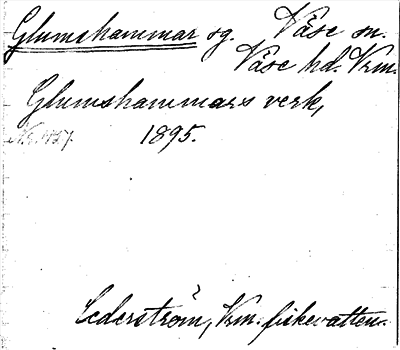 Glumshammar sg. Väse sn.
Väse hd. Vrm.
Glumshammars verk,
1895.
Cederström, Vrm. fiskevatten.